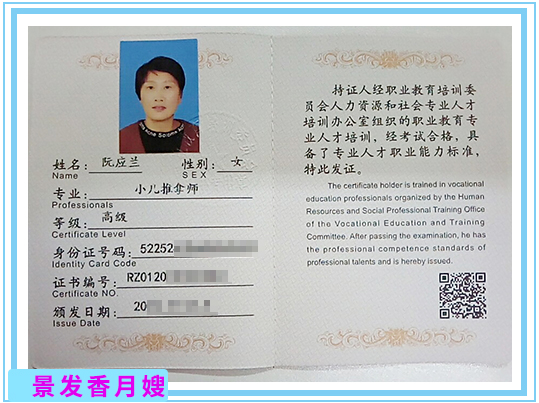 姓名: 阮应兰 性别: 女
Name SEX
专业: 小儿推拿师
Professionals
等级: 高级
Certificate Level
身份证号码: 52252
Identity Card Code
证书编号: RZ0120
Certificate NO.
颁发日期: 20
Issue Date
持证人经职业教育培训委
员会人力资源和社会专业人才
培训办公室组织的职业教育专
业人才培训,经考试合格,具
备了专业人才职业能力标准,
特此发证。
The certificate holder is trained in vocational
education professionals organized by the Human
Resources and Social Professional Training Office
of the Vocational Education and Training
Committee. After passing the examination, he has
the professional competence standards of
professional talents and is hereby issued.
景发香月嫂